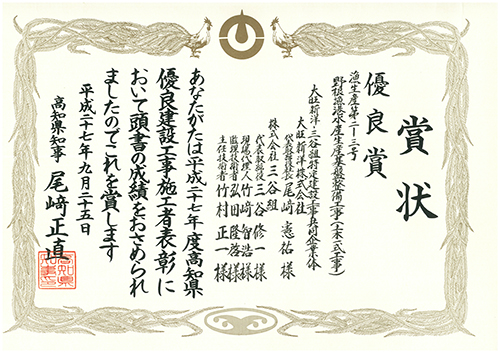 賞状
優良賞
漁生産第二ー三号
野根漁港水産生産基盤整備工事(一本一式工事)
大旺新洋・三谷組特定建設工事共同企業体
大旺新洋株式会社
代表取締役社長 尾崎憲祐 様
株式会社 三谷組
代表取締役 三谷修一 様
現場代理人 竹崎智浩 様
監理技術者 弘田隆啓 様
主任技術者 竹村正一 様
あなたがたは平成二十七年度高知県
優良建設工事施工者表彰に
おいて頭書の成績をおさめられ
ましたのでこれを賞します
平成二十七年九月二十五日
高知県知事 尾﨑正直
高知県知事之印